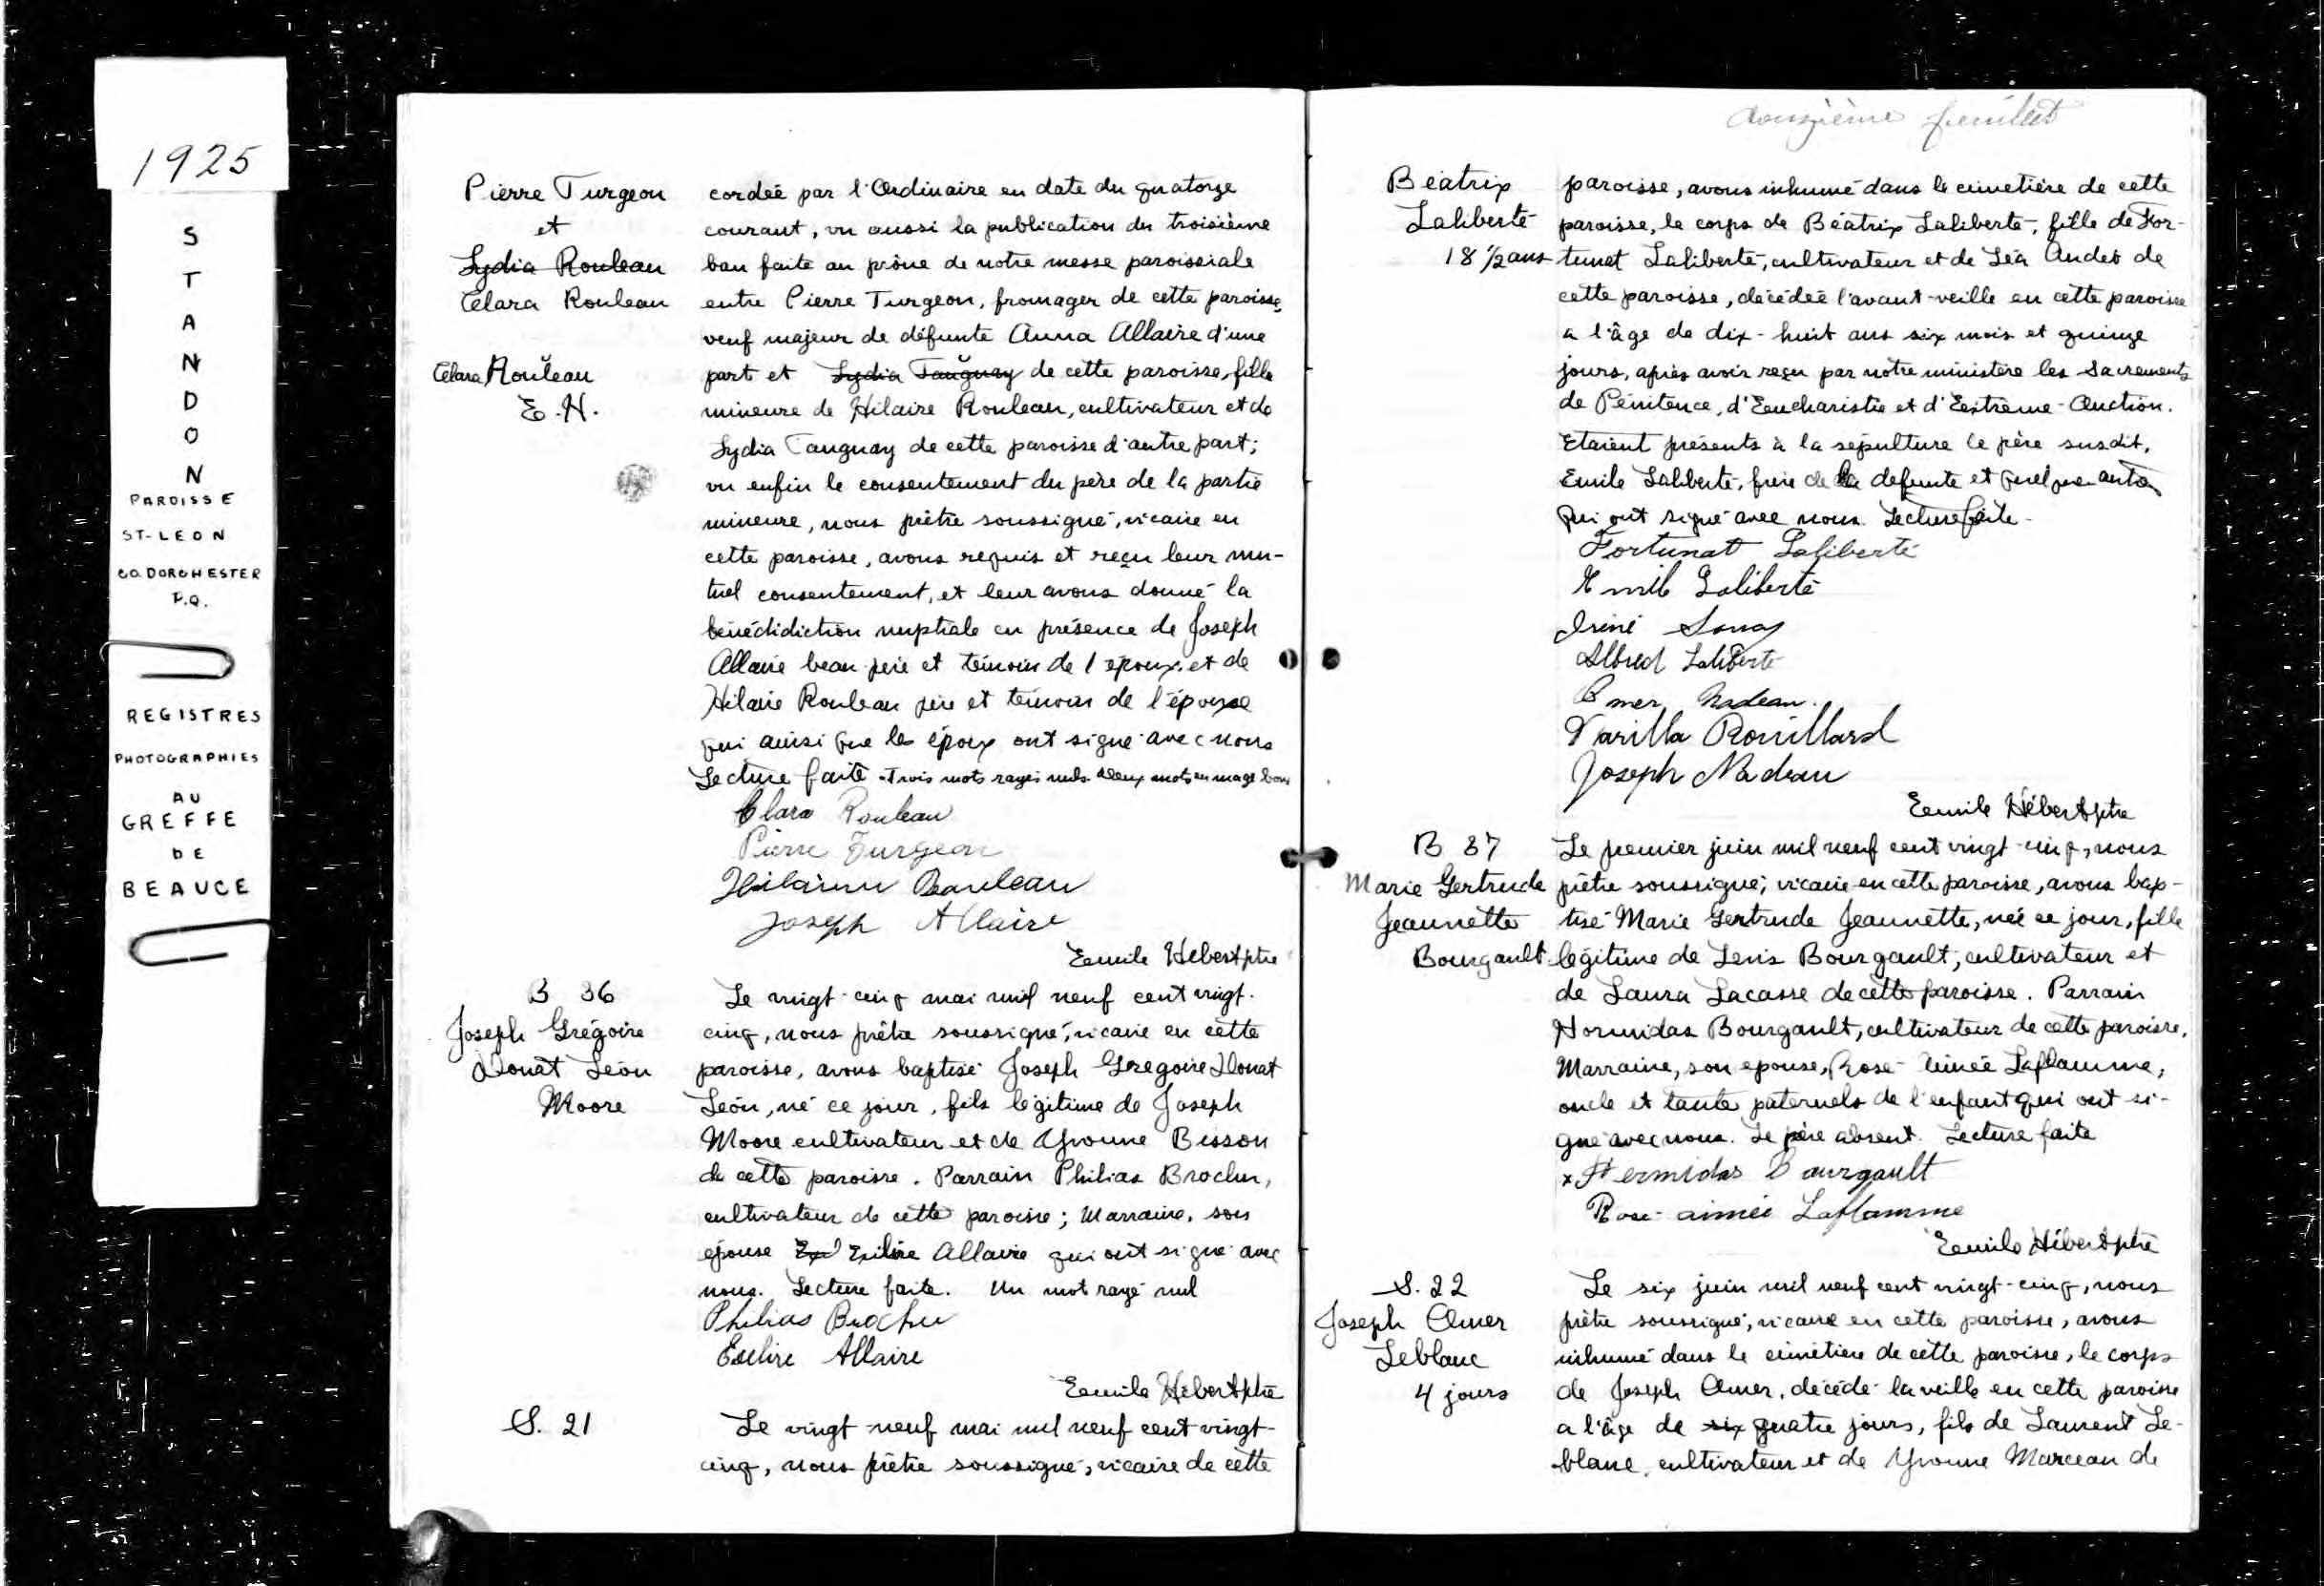 1925
S
T
A
N
D
O
N
PAROISSE
ST-LEON
CO. DORCHESTER
P.Q.
REGISTRES
PHOTOGRAPHIES
AU
GREFFE
DE
BEAUCE
Pierre Turgeon
et
Lydia Rouleau
Clara Rouleau
Clara Rouleau
E. H.
cordée par l'Ordinaire en date du quatorze
courant, vu aussi la publication du troisième
ban faite au prône de notre messe paroissiale
entre Pierre Turgeon, fromager de cette paroisse,
veuf majeur de défunte Anna Allaire d'une
part et Lydia Tanguay de cette paroisse, fille
mineure de Hilaire Rouleau, cultivateur et de
Lydia Tanguay de cette paroisse d'autre part;
vu enfin le consentement du père de la partie
mineure, nous prêtre soussigné, vicaire en
cette paroisse, avons requis et reçu leur mu-
tuel consentement, et leur avons donné la
bénédidiction nuptiale en présence de Joseph
Allaire beau-père et témoin de l'époux, et de
Hilaire Rouleau père et témoin de l'épouse
qui ainsi que les époux ont signé avec nous
Lecture faite - Trois mots rayés nuls. Deux mots en marge bons
Clara Rouleau
Pierre Turgeon
Hilaire Rouleau
Joseph Allaire
Emile Hébert ptre
B 36
Joseph Grégoire
Donat Léon
Moore
Le vingt-cinq mai mil neuf cent vingt-
cinq, nous prêtre soussigné, vicaire en cette
paroisse, avons baptisé Joseph Gregoire Donat
Léon, né ce jour, fils légitime de Joseph
Moore cultivateur et de Yvonne Bisson
de cette paroisse. Parrain Philias Brochu,
cultivateur de cette paroisse; Marraine, son
épouse Exélire Allaire qui ont signé avec
nous. Lecture faite. Un mot rayé nul
Philias Brochu
Exelire Allaire
Emile Hébert ptre
S. 21
Le vingt-neuf mai mil neuf cent vingt-
cinq, nous prêtre soussigné, vicaire de cette
douzième feuillet
Béatrix
Laliberté
18 1/2 ans
paroisse, avons inhumé dans le cimetière de cette
paroisse, le corps de Béatrix Laliberté, fille de For-
tunat Laliberté, cultivateur et de Léa Audet de
cette paroisse, décédée l'avant-veille en cette paroisse
a l'âge de dix-huit ans six mois et quinze
jours, après avoir reçu par notre ministère les Sacrements
de Pénitence, d'Eucharistie et d'Extrême-Onction.
Etaient présents à la sépulture le père susdit,
Emile Laliberté, frère de la defunte et quelques autres
qui ont signé avec nous. Lecture faite -
Fortunat Laliberté
Emile Laliberté
Iréné
Alfred Laliberté
Omer Nadeau.
Varilla Rouillard
Joseph Nadeau
Emile Hébert ptre
B 37
Marie Gertrude
Jeannette
Bourgault
Le premier juin mil neuf cent vingt-cinq, nous
prêtre soussigné, vicaire en cette paroisse, avons bap-
tisé Marie Gertrude Jeannette, née ce jour, fille
légitime de Lévis Bourgault, cultivateur et
de Laura Lacasse de cette paroisse. Parrain
Hormidas Bourgault, cultivateur de cette paroisse,
Marraine, son epouse, Rose-Aimée Laflamme,
oncle et tante paternels de l'enfant qui ont si-
gné avec nous. Le père absent. Lecture faite
x Hermidas Bourgault
Rose-aimée Laflamme
Emile Hébert ptre
S. 22
Joseph Omer
Leblanc
4 jours
Le six juin mil neuf cent vingt-cinq, nous
prêtre soussigné, vicaire en cette paroisse, avons
inhumé dans le cimetière de cette paroisse, le corps
de Joseph Omer, décédé la veille en cette paroisse
a l'âge de six quatre jours, fils de Laurent Le-
blanc, cultivateur et de Yvonne Marceau de